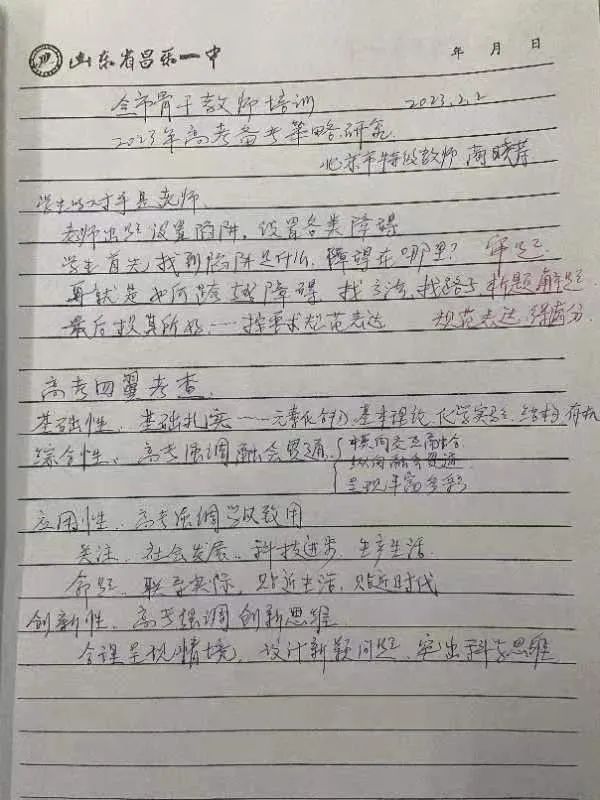 山东省昌乐一中
年 月 日
全市骨干教师培训 2023.2.2
2023年高考备考策略研究
北京市特级教师 高晓萍
学生的对手是老师.
老师出题设置陷阱, 设置各类障碍
学生首先找到陷阱是什么, 障碍在哪里? 审题
再就是如何跨越障碍, 找方法, 找路子, 析题解题
最后投其所好……按要求规范表达 规范表达, 得满分
高考四翼考查.
基础性、基础扎实……元素化合物、基本理论、化学实验、结构、有机
综合性、高考强调融会贯通
横向交互融合
纵向融会贯通
呈现丰富多彩
应用性、高考强调学以致用
关注、社会发展、科技进步、生产生活.
命题、联系实际, 贴近生活, 贴近时代
创新性、高考强调创新思维
合理呈现情境, 设计新颖问题, 突出科学思维